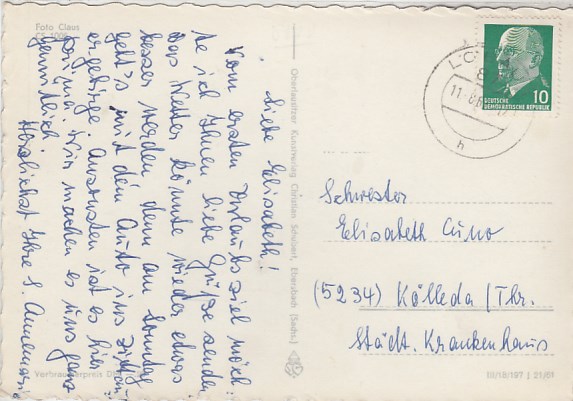 Foto Claus
Liebe Elisabeth!
Vom ersten Urlaubsziel möch-
te ich Ihnen liebe Grüße senden
Das Wetter könnte wieder etwas
besser werden denn am Sonntag
geht's mit dem Auto ins
ergebirge. Ansonsten ist es hier
prima. Wir machen es uns ganz
gemütlich.
Herzlichst Ihre S. Annemarie
Oberlausitzer Kunstverlag Christian Schubert, Ebersbach (Sachs.)
Verbraucherpreis
DEUTSCHE
DEMOKRATISCHE REPUBLIK
10
Schwester
Elisabeth Cuno
(5234) Kölleda/Thr.
Städt. Krankenhaus
III/18/197 J 21/61